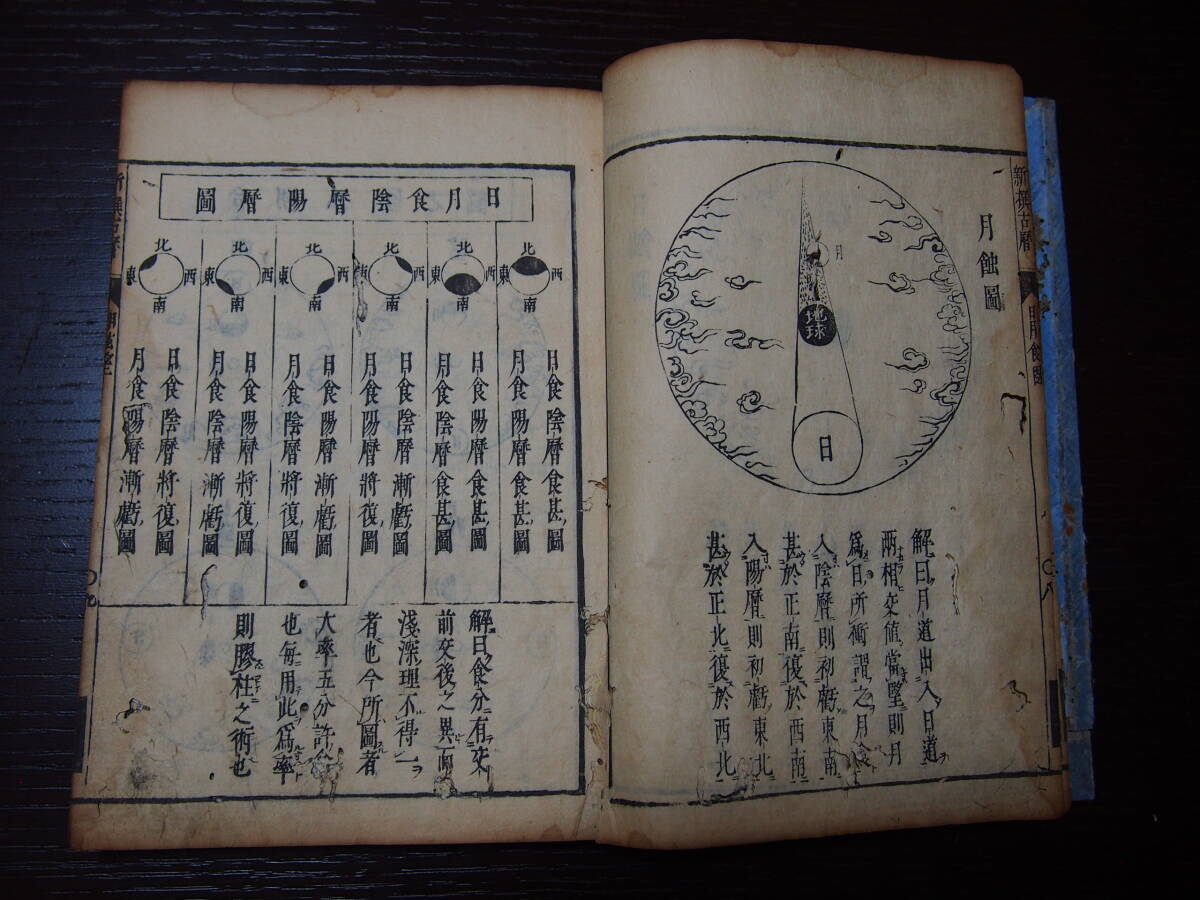 新撰古暦
月蝕圖
月
地球
日
解曰月道出入日道
兩相交値當望則月
爲日所衝謂之月食
入陰暦則初虧東南
甚於正南復於西南
入陽暦則初虧東北
甚於正北復於西北
日月食陰暦陽暦圖
北
西
南
東
日食陰暦食甚圖
月食陽暦食甚圖
北
西
南
東
日食陽暦食甚圖
月食陰暦食甚圖
北
西
南
東
日食陰暦漸虧圖
月食陽暦將復圖
北
西
南
東
日食陽暦漸虧圖
月食陰暦將復圖
北
西
南
東
日食陽暦將復圖
月食陰暦漸虧圖
北
西
南
東
日食陰暦將復圖
月食陽暦漸虧圖
解曰食分有交
前交後之異而
淺深理不得一
者也今所圖者
大率五分許
也毎用此爲率
則膠柱之術也